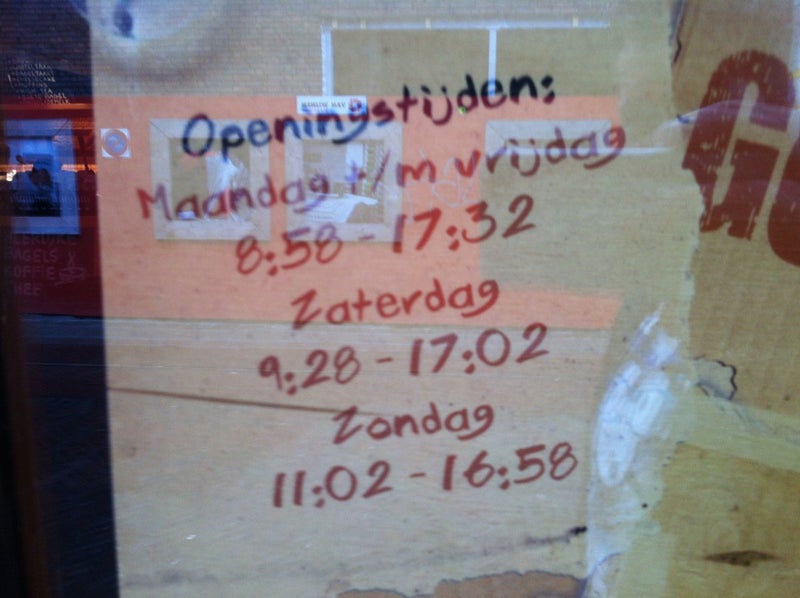 Openingstijden:
Maandag t/m vrijdag
8:58 - 17:32
Zaterdag
9:28 - 17:02
Zondag
11:02 - 16:58
BAGELS
KOFFIE